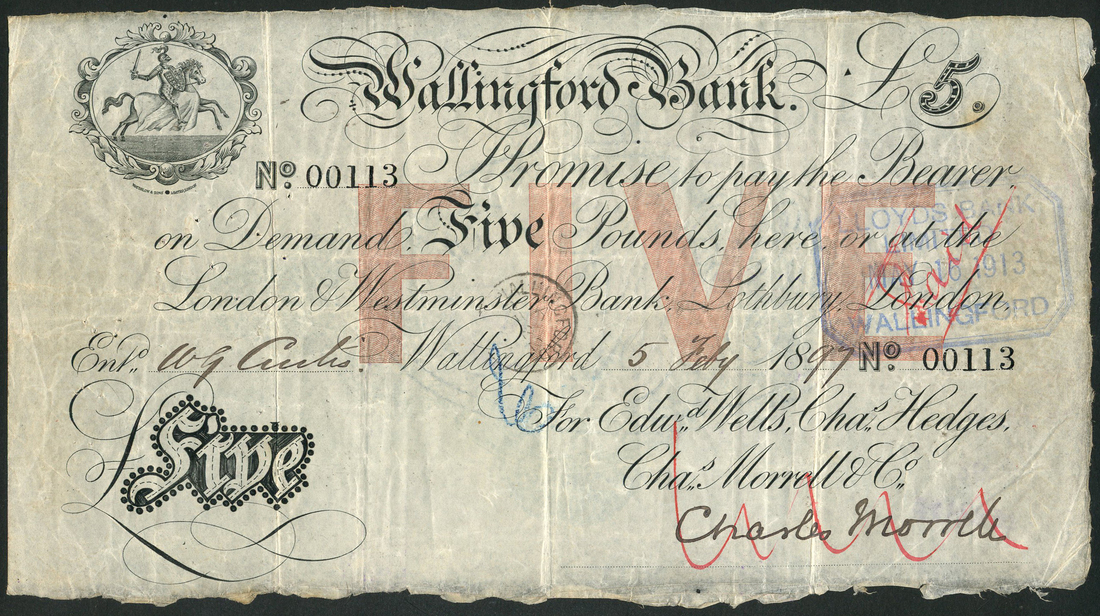 Wallingford Bank. £5.
No. 00113 I Promise to pay the Bearer
on Demand, Five Pounds, here, or at the
London & Westminster Bank, Lothbury, London,
Entd. W G Wallingford 5 Feby 1897 No. 00113
FIVE
LLOYDS BANK
LIMITED
MAY 16 1913
WALLINGFORD
Paid
£ Five
For Edwd. Wells, Chas. Hedges,
Chas. Morrell & Co.
Charles Morrell